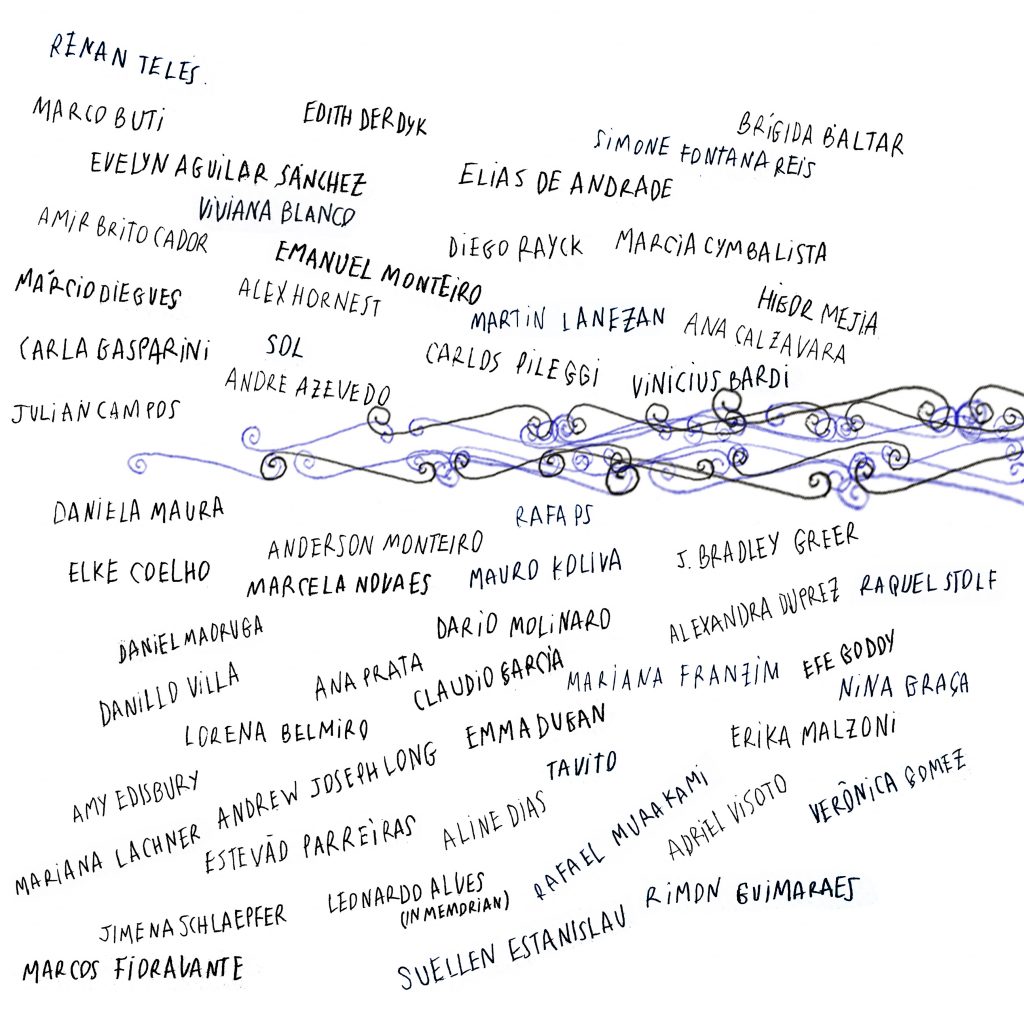 RENAN TELES.
MARCO BUTI
EDITH DERDYK
BRÍGIDA BALTAR
SIMONE FONTANA REIS
EVELYN AGUILAR SÁNCHEZ
ELIAS DE ANDRADE
VIVIANA BLANCO
AMIR BRITO CADOR
DIEGO RAYCK
MARCIA CYMBALISTA
EMANUEL MONTEIRO
MÁRCIO DIEGUES
ALEX HORNEST
HIGOR MEJIA
MARTIN LANEZAN
ANA CALZAVARA
CARLA GASPARINI
SOL
CARLOS PILEGGI
ANDRE AZEVEDO
VINICIUS BARDI
JULIAN CAMPOS
DANIELA MAURA
RAFA PS
ANDERSON MONTEIRO
J. BRADLEY GREER
ELKE COELHO
MARCELA NOVAES
MAURO KOLIVA
RAQUEL STOLF
DANIEL MADRUGA
DARIO MOLINARO
ALEXANDRA DUPREZ
DANILLO VILLA
ANA PRATA
CLAUDIO GARCÍA
MARIANA FRANZIM
EFE GODOY
NINA GRAÇA
LORENA BELMIRO
EMMA DUGAN
ERIKA MALZONI
AMY EDISBURY
ANDREW JOSEPH LONG
TAVITO
VERÔNICA GOMEZ
MARIANA LACHNER
ESTEVÃO PARREIRAS
ALINE DIAS
RAFAEL MURAKAMI
ADRIEL VISOTO
JIMENA SCHLAEPFER
LEONARDO ALVES
(IN MEMORIAN)
RIMON GUIMARAES
MARCOS FIORAVANTE
SUELLEN ESTANISLAU